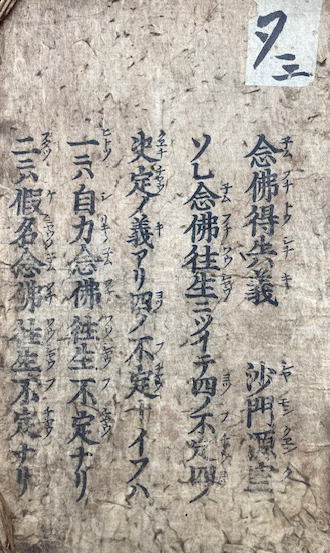 タ三
念佛得失義　沙門源空
ソレ念佛往生ニツイテ四ノ不定四ノ
决定ノ義アリ四ノ不定トイフハ
一ニハ自力念佛往生不定ナリ
二ニハ假名念佛往生不定ナリ